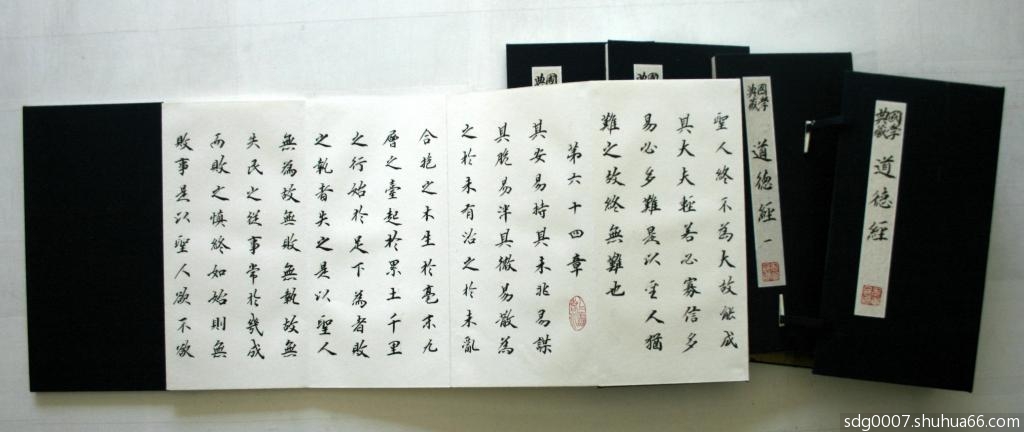 聖人終不為大故能成
其大夫輕諾必寡信多
易必多難是以聖人猶
難之故終無難也
第六十四章
其安易持其未兆易謀
其脆易泮其微易散為
之於未有治之於未亂
合抱之木生於毫末九
層之臺起於累土千里
之行始於足下為者敗
之執者失之是以聖人
無為故無敗無執故無
失民之從事常於幾成
而敗之慎終如始則無
敗事是以聖人欲不欲
國學
典藏
道德經
國學
典藏
道德經一
國
典
國
典
sdg0007.shuhua66.com